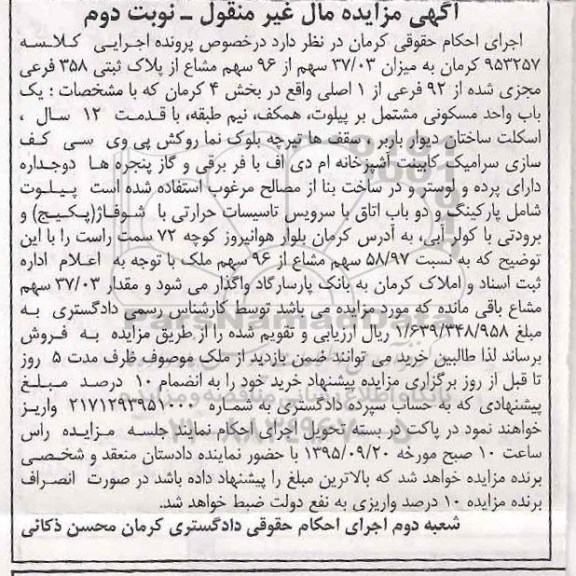 آگهی مزایده مال غیر منقول ـ نوبت دوم
اجرای احکام حقوقی کرمان در نظر دارد درخصوص پرونده اجرایی کلاسه
۹۵۳۲۵۷ کرمان به میزان ۳۷/۰۳ سهم از ۹۶ سهم مشاع از پلاک ثبتی ۳۵۸ فرعی
مجزی شده از ۹۲ فرعی از ۱ اصلی واقع در بخش ۴ کرمان که با مشخصات : یک
باب واحد مسکونی مشتمل بر پیلوت، همکف، نیم طبقه، با قدمت ۱۲ سال ،
اسکلت ساختان دیوار باربر و سقف ها تیرچه بلوک نما روکش پی وی سی کف
سازی سرامیک کابینت آشپزخانه ام دی اف با فر برقی و گاز پنجره ها دوجداره
دارای پرده و لوستر و در ساخت بنا از مصالح مرغوب استفاده شده است پیلوت
شامل پارکینگ و دو باب اتاق با سرویس تاسیسات حرارتی با شوفاژ(پکیج) و
برودتی با کولر آبی، به آدرس کرمان بلوار هوانیروز کوچه ۷۲ سمت راست را با این
توضیح که به نسبت ۵۸/۹۷ سهم مشاع از ۹۶ سهم ملک با توجه به اعلام اداره
ثبت اسناد و املاک کرمان به بانک پارسارگاد واگذار می شود و مقدار ۳۷/۰۳ سهم
مشاع باقی مانده که مورد مزایده می باشد توسط کارشناس رسمی دادگستری به
مبلغ ۱/۶۳۹/۳۴۸/۹۵۸ ریال ارزیابی و تقویم شده را از طریق مزایده به فروش
برساند لذا طالبین خرید می توانند ضمن بازدید از ملک موصوف ظرف مدت ۵ روز
تا قبل از روز برگزاری مزایده پیشنهاد خرید خود را به انضمام ۱۰ درصد مبلغ
پیشنهادی که به حساب سپرده دادگستری به شماره ۲۱۷۱۲۹۳۹۵۱۰۰۰ واریز
خواهند نمود در پاکت در بسته تحویل اجرای احکام نمایند جلسه مزایده راس
ساعت ۱۰ صبح مورخه ۱۳۹۵/۰۹/۲۰ با حضور نماینده دادستان منعقد و شخصی
برنده مزایده خواهد شد که بالاترین مبلغ را پیشنهاد داده باشد در صورت انصراف
برنده مزایده ۱۰ درصد واریزی به نفع دولت ضبط خواهد شد.
شعبه دوم اجرای احکام حقوقی دادگستری کرمان محسن ذکائی